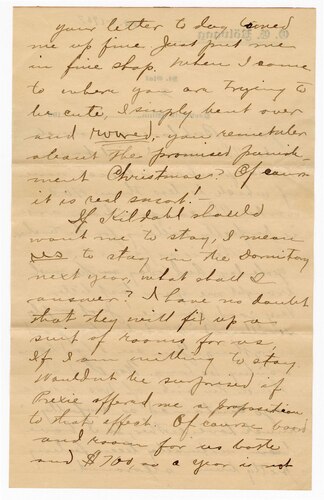 your letter to day tuned
me up fine Just put me
in fine shap. When I come
to where you are trying to
be cute, I simply bent over
and rowred, you remember
about the promised punish-
ment Christmas? Of course
it is real sweet! -
If Kildahl should
want me to stay, I mean
us to stay in the Dormitory
next year, what shall I
answer? I have no doubt
that they will fix up a
suit of rooms for us,
If I am willing to stay
Wouldn't be surprised if
Prexie offered me a proposition
to that effect. Of course board
and room for us both
and $700, as a year is not